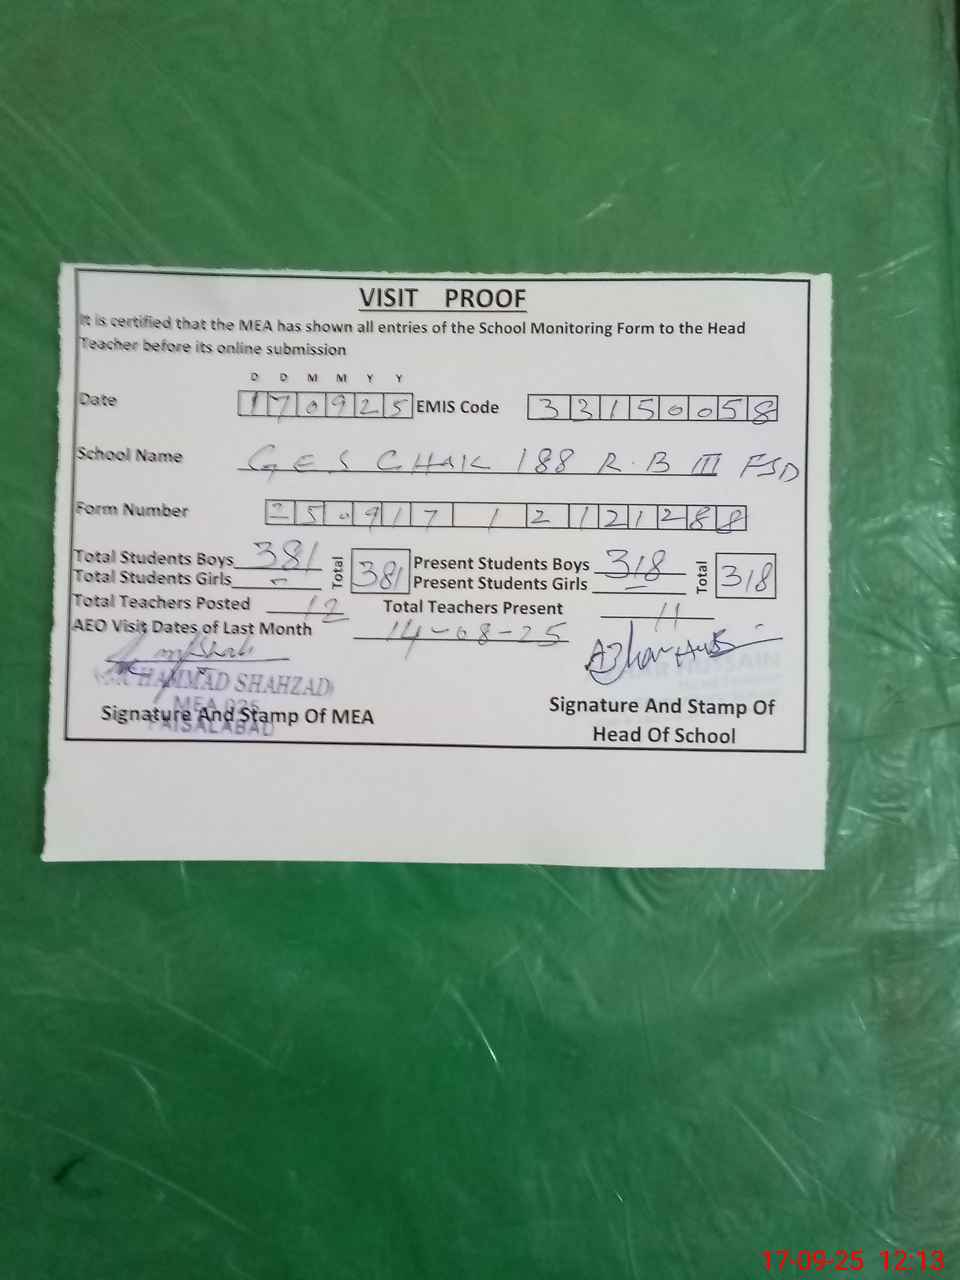 VISIT PROOF
It is certified that the MEA has shown all entries of the School Monitoring Form to the Head
Teacher before its online submission
D D M M Y Y
Date 170925 EMIS Code 33150058
School Name GES CHAK 188 R.B III FSD
Form Number 250917 1 2 1 21288
Total Students Boys 381 Total 381 Present Students Boys 318 Total 318
Total Students Girls - Present Students Girls -
Total Teachers Posted 12 Total Teachers Present 11
AEO Visit Dates of Last Month 14-08-25
Azhar Hussain
MUHAMMAD SHAHZAD
MEA
FAISALABAD
HUSSAIN
Signature And Stamp Of MEA
Signature And Stamp Of
Head Of School
17-09-25 12:13